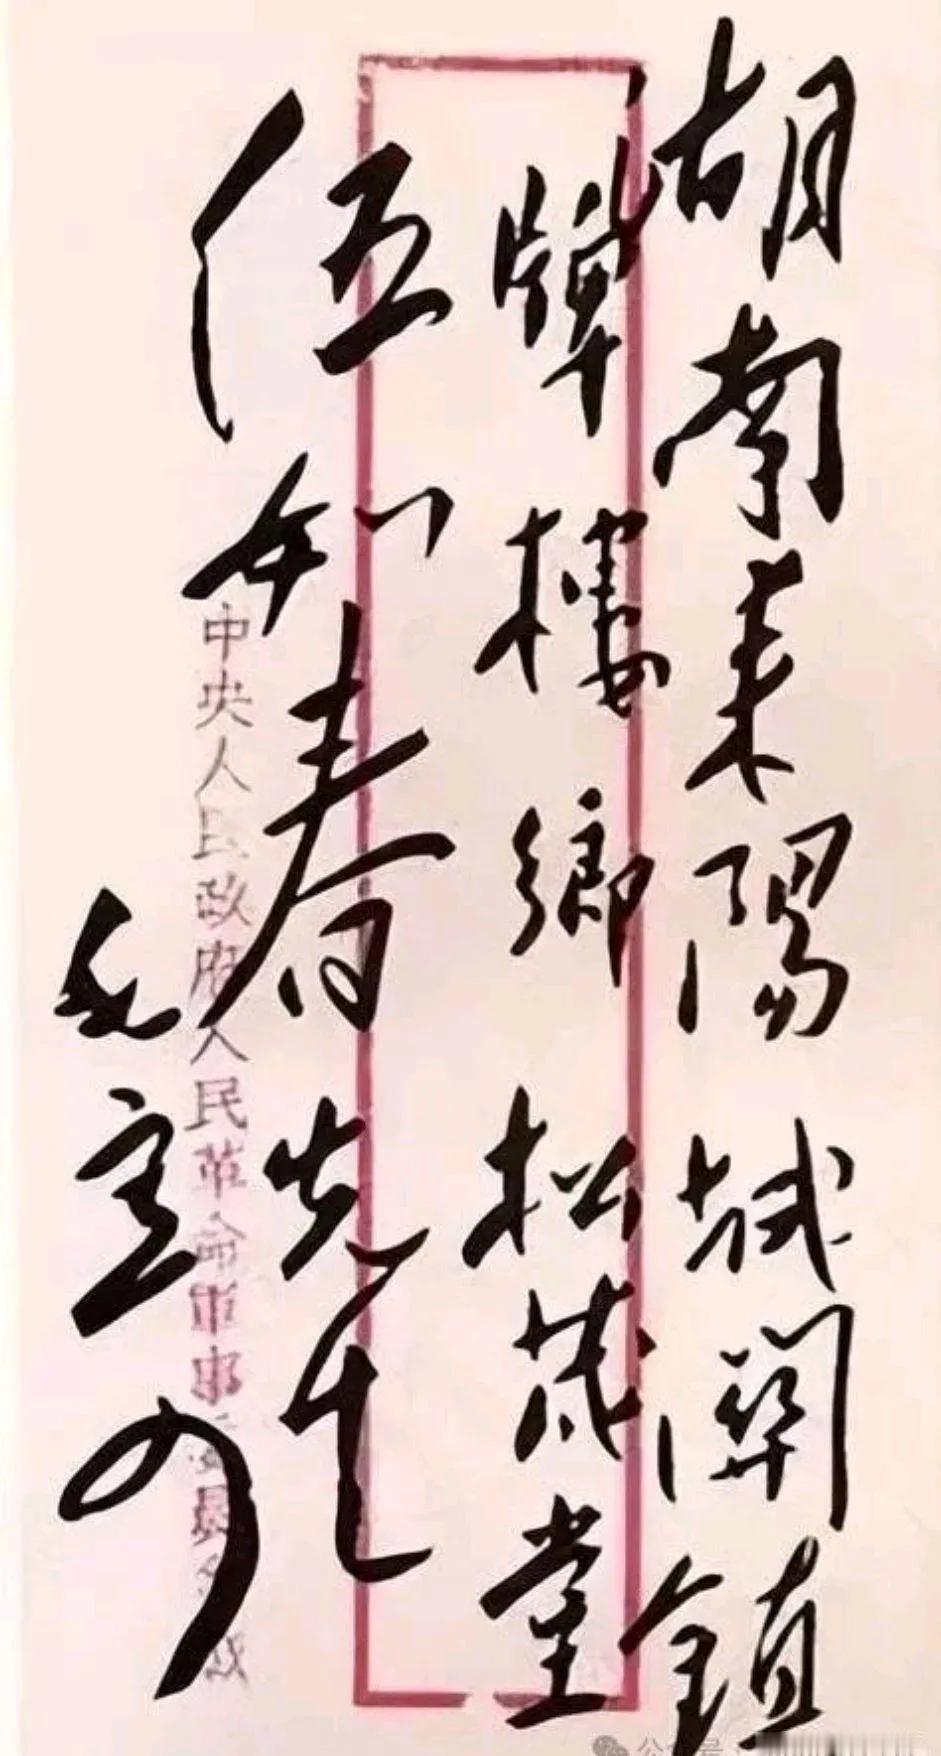 湖南耒陽城關鎮
牌樓鄉松茂堂
伍如春先生
中央人民政府人民革命軍事委員會緘
毛
公众号